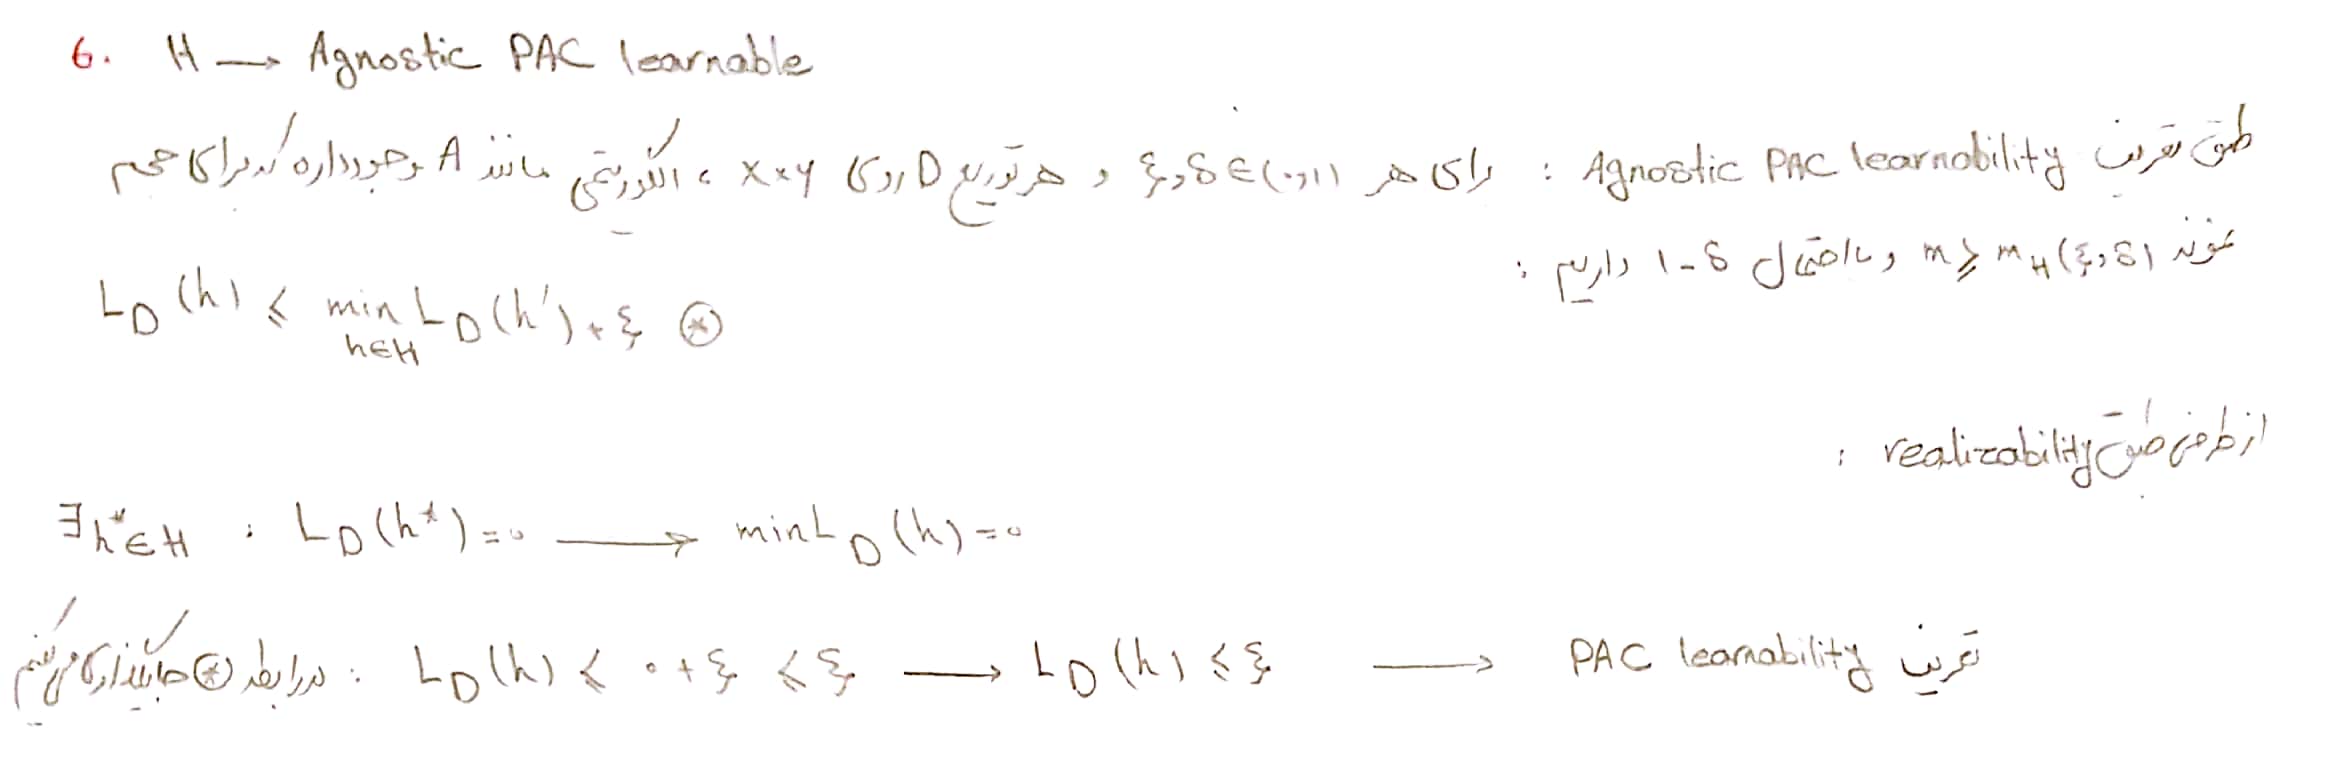 6. H → Agnostic PAC learnable
طبق تعریف Agnostic PAC learnability : برای هر ξ,δ ∈ (0,1) و هر توزیع D روی X×Y ، الگوریتمی مانند A وجود داره که برای حجم
نمونه m ≥ m_H(ξ,δ) و با احتمال 1-δ داریم :
L_D(h) ≤ min_{h∈H} L_D(h') + ξ ⊛
از طرفی طبق realizability :
∃h*∈H : L_D(h*) = 0 → min L_D(h) = 0
در رابطه ⊛ جایگذاری می کنیم : L_D(h) ≤ 0 + ξ ≤ ξ → L_D(h) ≤ ξ → تعریف PAC learnability